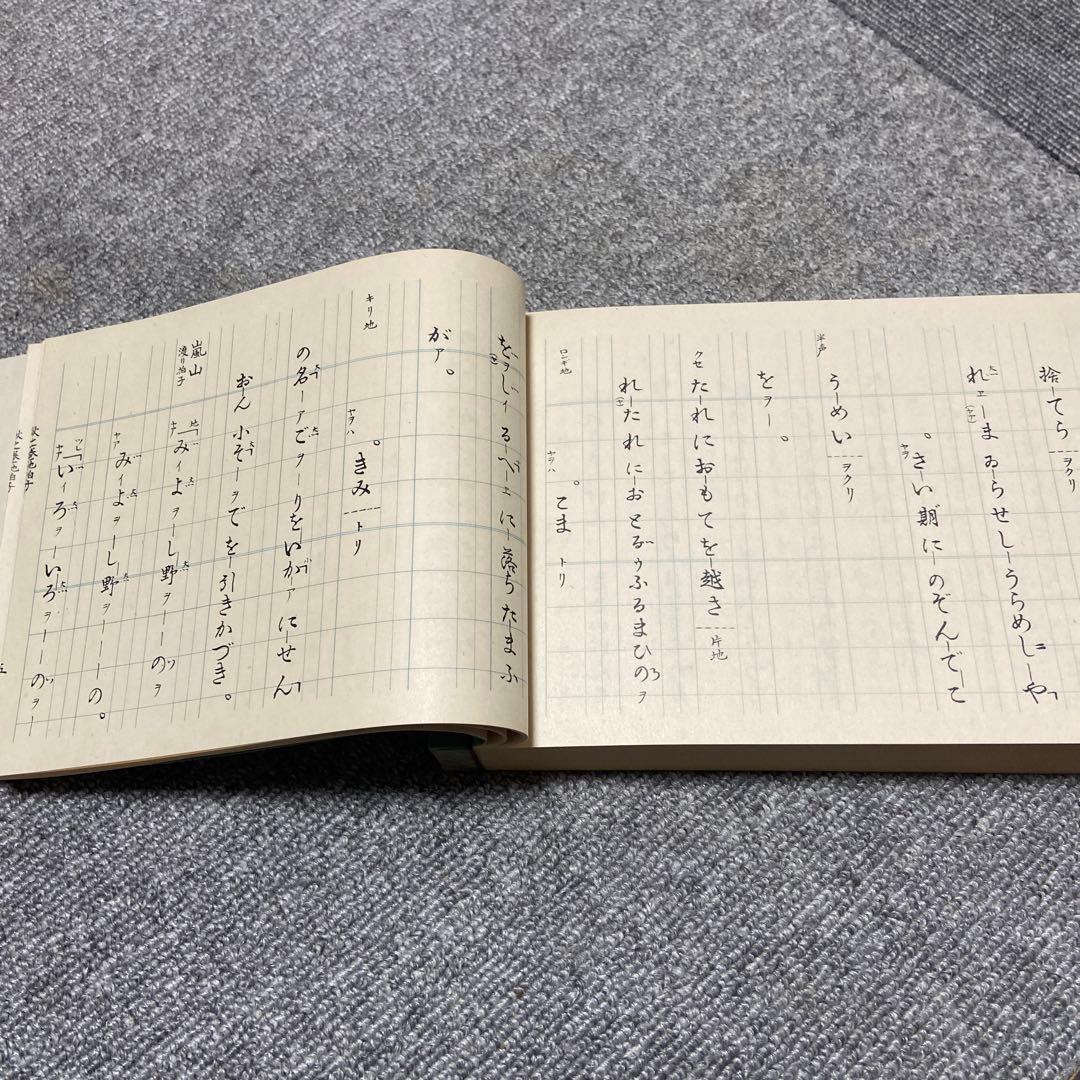 捨ーてら ヲクリ
れヱーまゐらせしーうらめしーや
ヤヲ 。さい期にのぞんーでーこ
半声 うーめい ヲクリ
をヲー。
クセ たーれにおーもてをー越き 片地
れーたれにーおとゞゥふるまひのヲ
ロンキ地 ヤヲハ 。こま トリ
をヲしィるーべーヱにー落ちたまふ
がァ。
キリ地 ヤヲハ 。きみ トリ
の名ーアごヲーりをいがァにーせん
おーん小そーヲでをー引きかづき。
嵐山 渡り拍子 地 ヤ みィよヲーし野ヲーのヲ
ヤア みィよヲーし野ヲーーーの。
ヤ いィろヲーいろヲーーのヲー